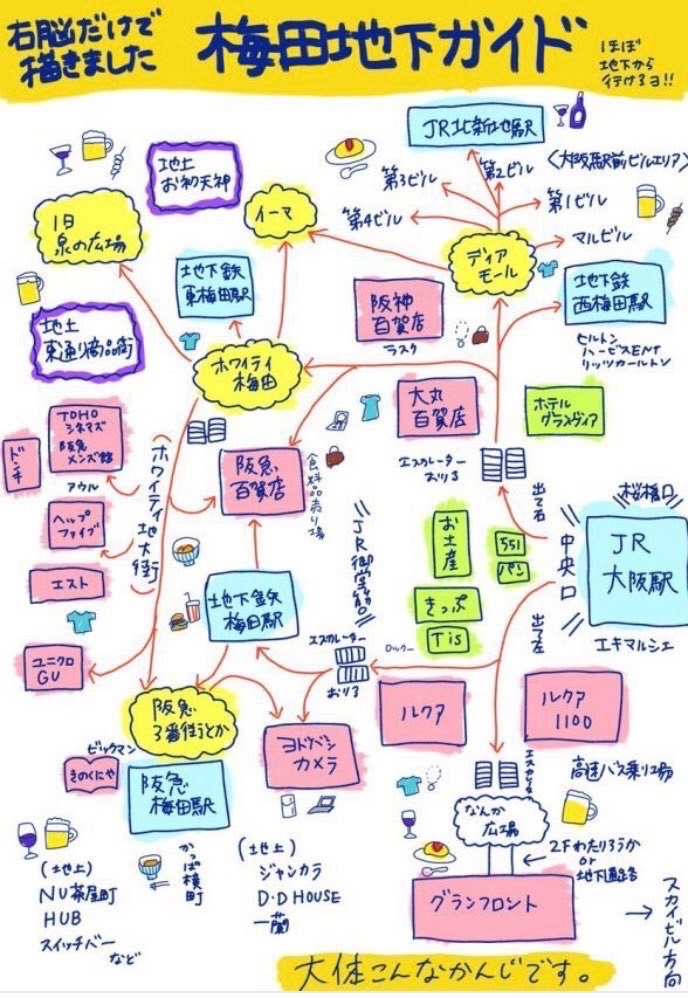 右脳だけで
描きました
梅田地下ガイド
ほぼ
地下から
行ける日!!
地上
お初天神
JR北新地駅
第3ビル
第2ビル
<大阪駅前ビルエリア>
第4ビル
第1ビル
マルビル
旧
泉の広場
イーマ
ディア
モール
地下鉄
東梅田駅
阪神
百貨店
ラスク
地下鉄
西梅田駅
ヒルトン
ハービスENT
リッツカールトン
地上
東通り商店街
ホワイティ
梅田
大丸
百貨店
ホテル
グランヴィア
TOHO
シネマズ
阪急
メンズ館
ドンキ
アウル
(ホワイティ地下街)
阪急
百貨店
食料品売り場
エスカレーター
おりる
出て右
桜橋口
ヘップ
ファイブ
JR御堂筋
お土産
551
パン
中央口
JR
大阪駅
エスト
地下鉄
梅田駅
きっぷ
Tis
出て左
エキマルシェ
ユニクロ
GU
エスカレーター
おりる
ロッカー
阪急
3番街とか
ヨドバシ
カメラ
ルクア
ルクア
1100
ビックマン
きのくにや
阪急
梅田駅
エスカレータ
高速バス乗り場
なんか
広場
かっぱ横町
2Fわたりろうか
or
地下通路
(地上)
NU茶屋町
HUB
スイッチバー
など
(地上)
ジャンカラ
D・D HOUSE
一蘭
グランフロント
スカイビル方向
大体こんなかんじです。